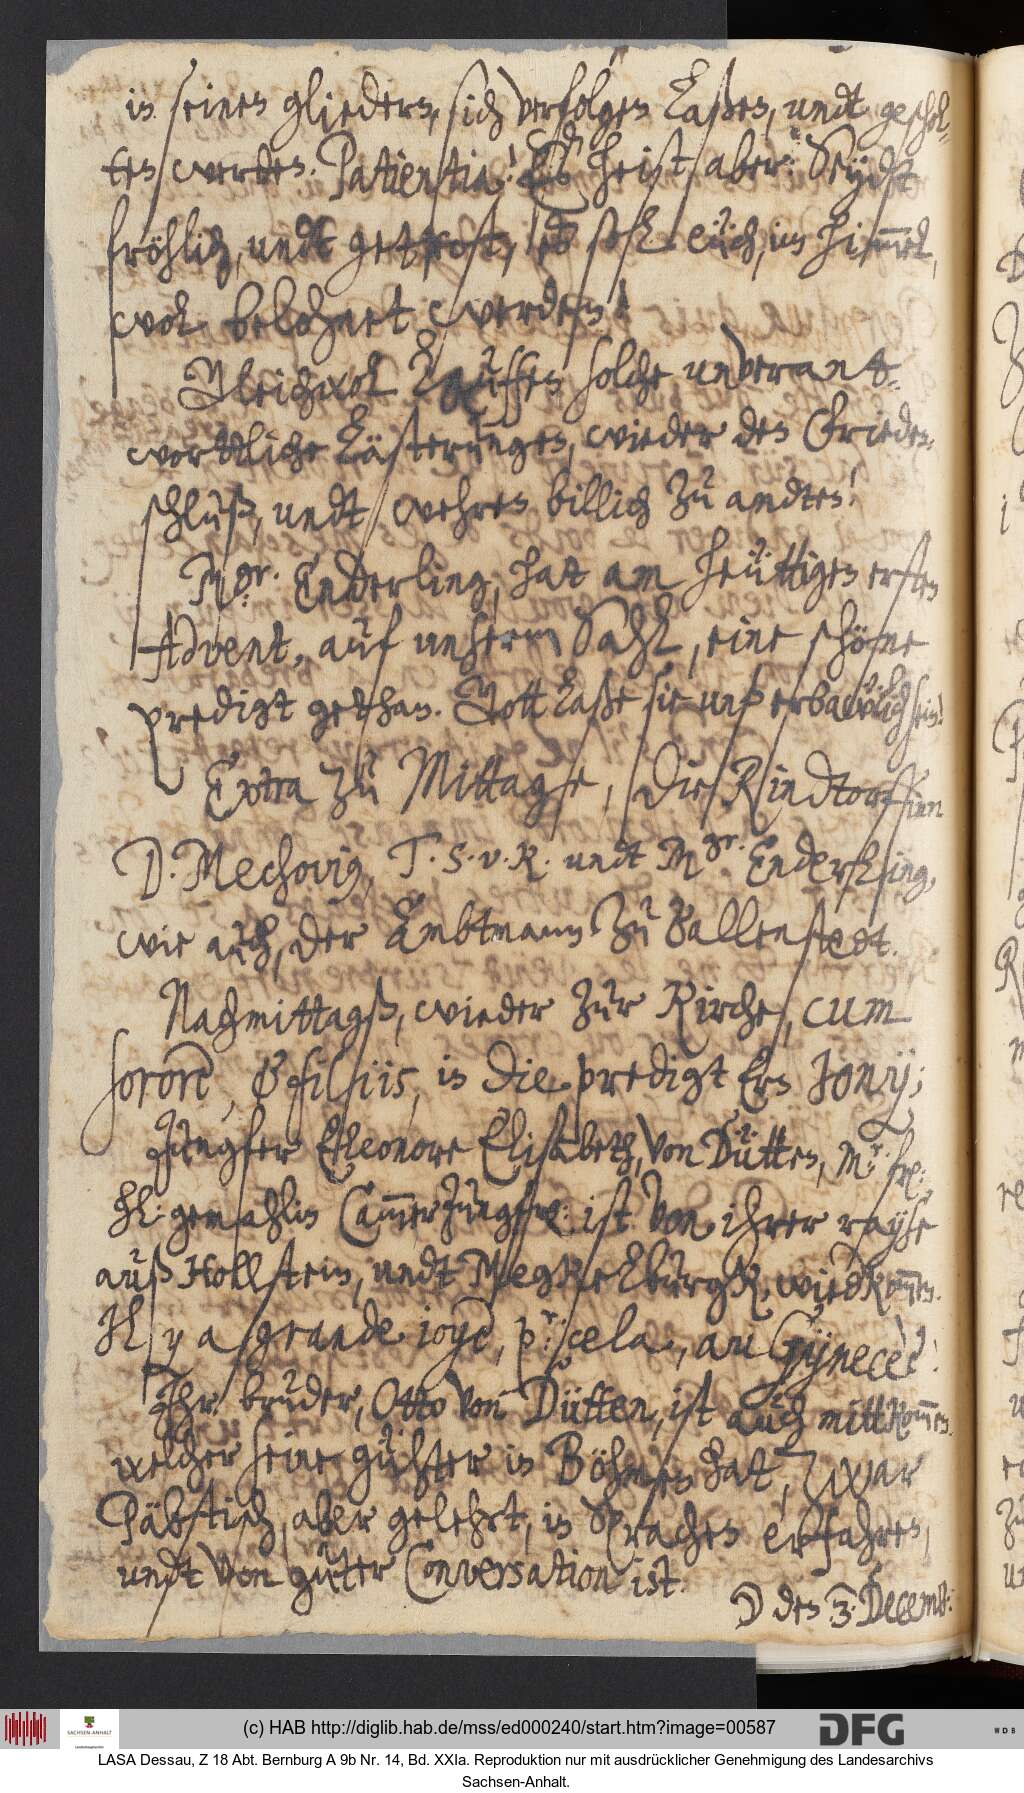 in seinen gliedern, sich verfolgen laßen, undt geschol-
ten werden. Patientia! Es heist aber: Seydt
fröhlich, undt getrost, es soll euch, im himmel,
wol belohnet werden!
Gleichwol lauffen solche unverant-
worttliche Lästerungen, wieder den Frieden-
schluß, undt wehren billich zu andten!
Mgr. Enderling, hat am heüttigen ersten
Advent, auf unserm Sahl, eine schöne
predigt gethan. Gott laße sie unß erbawlich sein!
Extra zu Mittage, die Rindtorffinn
D. Mechovig, T. S. v. R. undt Mgr. Enderling,
wie auch, der Ambtmann zu Ballenstedt.
Nachmittagß, wieder zur Kirche, cum
sorore, & filiis, in die predigt Ern Jonij;
Jungfer Eleonore Elisabeth, von Dütten, Mr. fr:
hl: gemahlin Cammerjungfer: ist von ihrer rayse
auß Hollstein, undt Megkelburgk, wiedkommen.
Il y a grande joye, pr: cela, au Gynecèe!
Ihr bruder, Otto von Dütten, ist auch mittkommen.
welcher seine gühter in Böhmen hat, zwar
Päbstisch, aber gelehrt, in Sprachen erfahren,
undt von guter Conversation ist.
☽ den 3. Decemb:
(c) HAB http://diglib.hab.de/mss/ed000240/start.htm?image=00587
SACHSEN-ANHALT
DFG
WDB
LASA Dessau, Z 18 Abt. Bernburg A 9b Nr. 14, Bd. XXIa. Reproduktion nur mit ausdrücklicher Genehmigung des Landesarchivs
Sachsen-Anhalt.